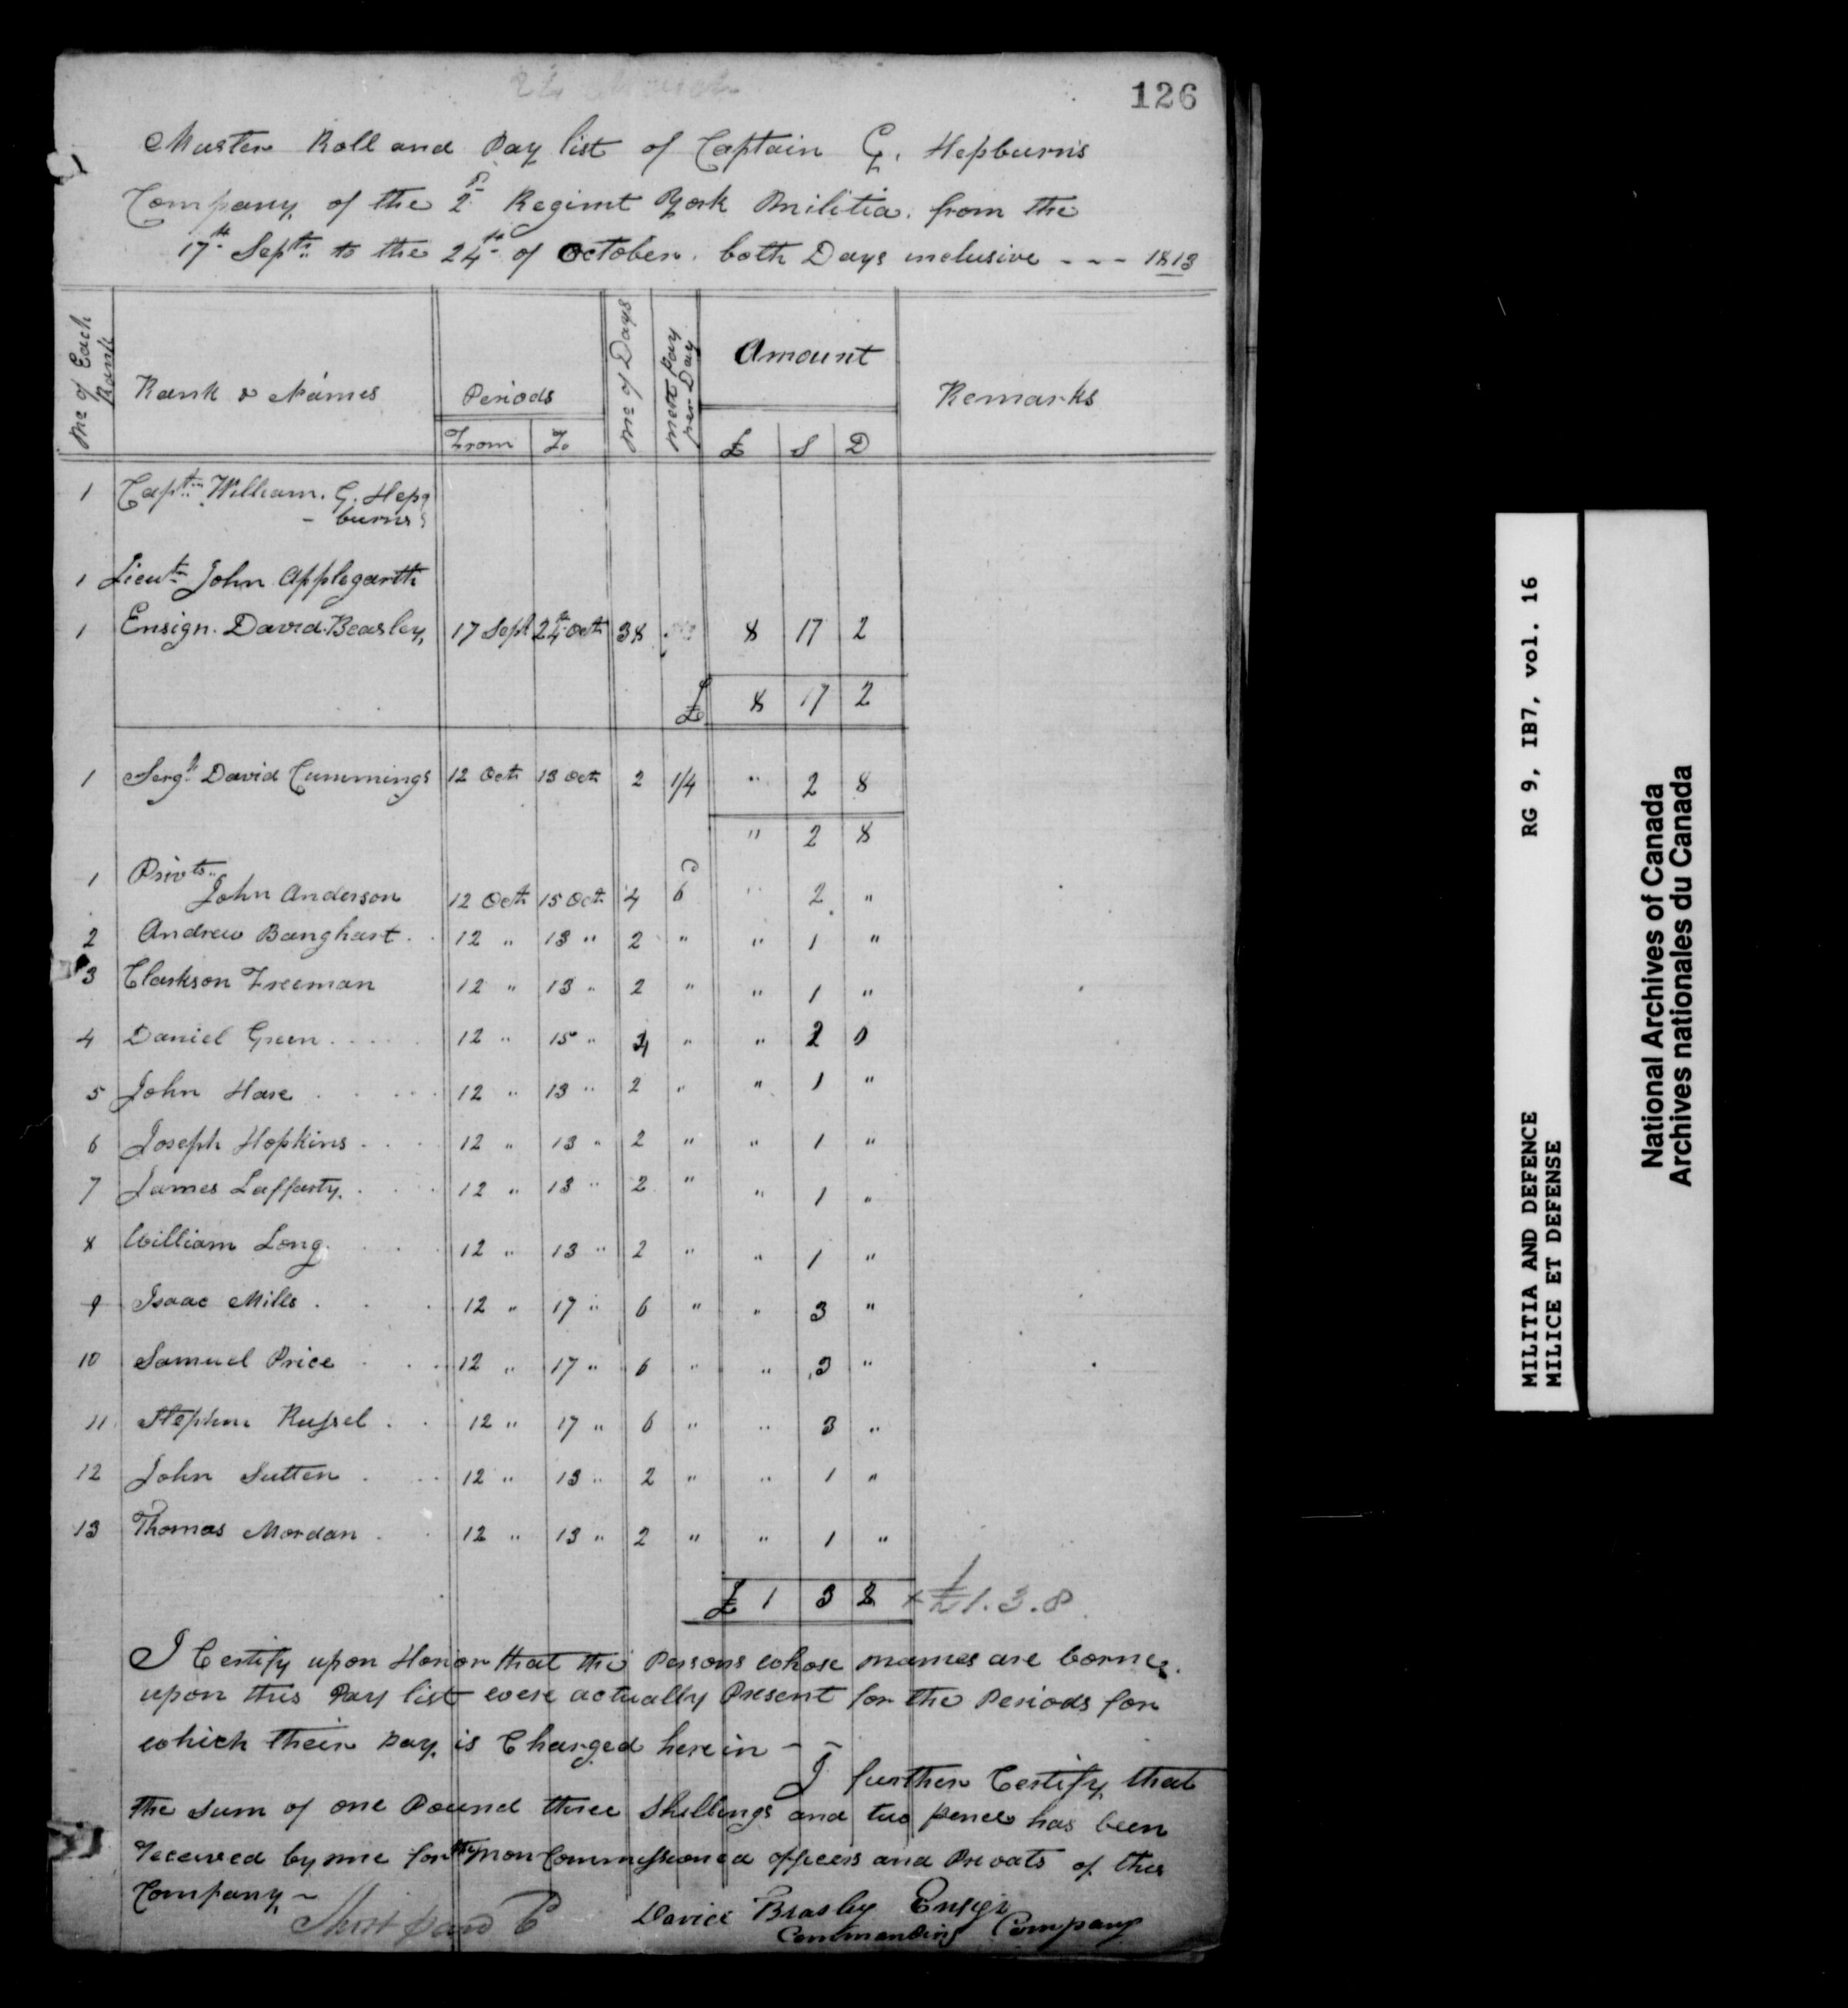 126
Muster Roll and Pay list of Captain G. Hepburn's
Company of the 2d Regimt York Militia from the
17th Septr to the 24th of October both Days inclusive - - - 1813
No of Each Rank
Rank & Names
Periods
From To
No of Days
per Day
Amount
£ S D
Remarks
1 Captn William. G. Hep
- burns
1 Lieut John Applegarth
1 Ensign. David. Beasley, 17 Sept 24th Octr 38 8 17 2
£ 8 17 2
1 Sergt David Cummings 12 Octr 13 Octr 2 1/4 " 2 8
" 2 8
1 Privts
John Anderson 12 Octr 15 Octr 4 6d " 2 "
2 Andrew Banghart . . 12 " 13 " 2 " " 1 "
3 Clarkson Freeman 12 " 13 " 2 " " 1 "
4 Daniel Green . . . . 12 " 15 " 4 " " 2 0
5 John Hare . . . . 12 " 13 " 2 " " 1 "
6 Joseph Hopkins . . . 12 " 13 " 2 " " 1 "
7 James Lafferty. . . . 12 " 13 " 2 " " 1 "
8 William Long. . . . 12 " 13 " 2 " " 1 "
9 Isaac Mills . . . 12 " 17 " 6 " " 3 "
10 Samuel Price . . . 12 " 17 " 6 " " 3 "
11 Stephen Russel . . 12 " 17 " 6 " " 3 "
12 John Sutten . . . 12 " 13 " 2 " " 1 "
13 Thomas Mordan . . 12 " 13 " 2 " " 1 "
£ 1 3 2 + £1.3.8
I Certify upon Honor that the Persons whose names are borne
upon this Pay list were actually Present for the Periods for
which their Pay is Charged herein - -
I further Certify that
the Sum of one Pound three Shillings and two pence has been
received by me for the non Commissioned officers and Privats of this
Company ~
Short paid 6
David Beasley Ensign
Commanding Company
MILITIA AND DEFENCE RG 9, IB7, vol. 16
MILICE ET DEFENSE
National Archives of Canada
Archives nationales du Canada